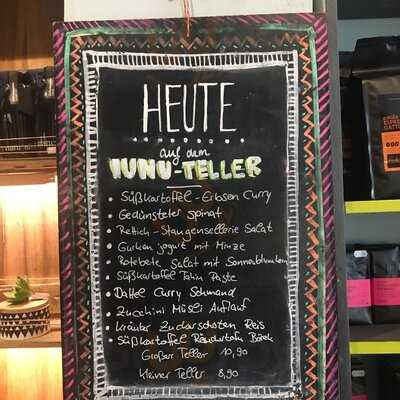 HEUTE
auf dem
NUNU-TELLER
Süßkartoffel-Erbsen Curry
Gedünsteter Spinat
Rettich-Stangensellerie Salat
Gurken jogurt mit Minze
Rotebete Salat mit Sonnenblumken
Süßkartoffel Tahin Paste
Dattel Curry Schmand
Zucchini Müsli Auflauf
Kräuter Reis
Süßkartoffel
Großer Teller 10,90
Kleiner Teller 8,90